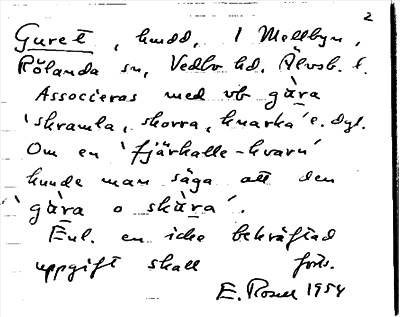 2
Guret, hmdd, 1 Mellbyn,
Rölanda sn, Vedbo hd, Älvsb. l.
Associeras med vb gära
'skramla, skorra, knarka' e. dyl.
Om en 'fjärkalle-kvarn'
kunde man säga att den
'gära o skära'.
Enl. en icke bekräftad
uppgift skall fots.
E. Rosell 1954